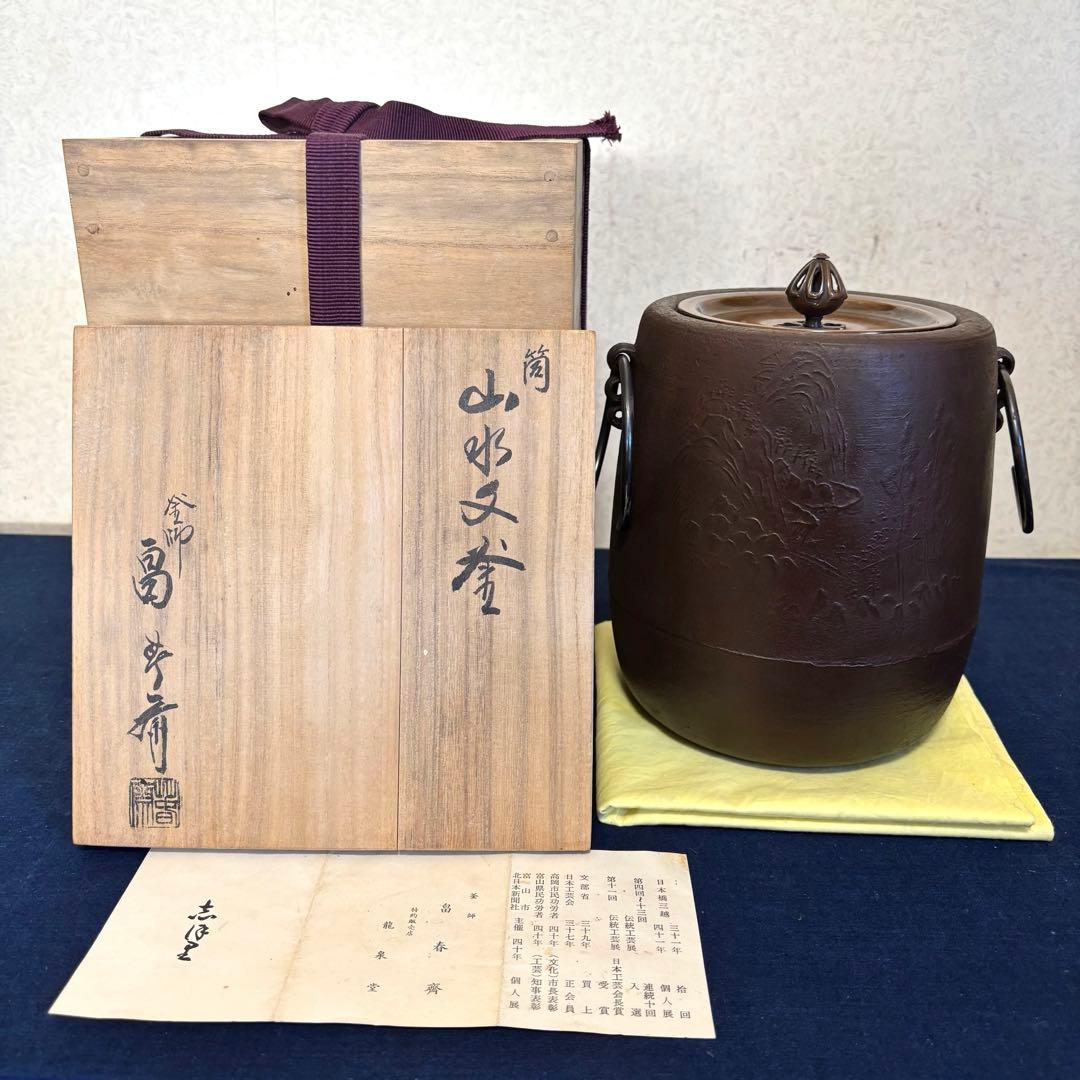 筒
山水文釜
釜師
畠春斎
日本橋三越 三十一年 四十一年 個人展 拾回
第四回〜十三回 伝統工芸展、連続十回入選
第十一回 伝統工芸展、日本工芸会長賞受賞
文部省 三十九年 買上
日本工芸会 三十七年 正会員
高岡市民功労者 四十年 (文化)市長表彰
富山県民功労者 四十年 (工芸)知事表彰
富山市
北日本新聞社 主催 四十年 個人展
釜師
畠春齋
特約販売店
龍泉堂